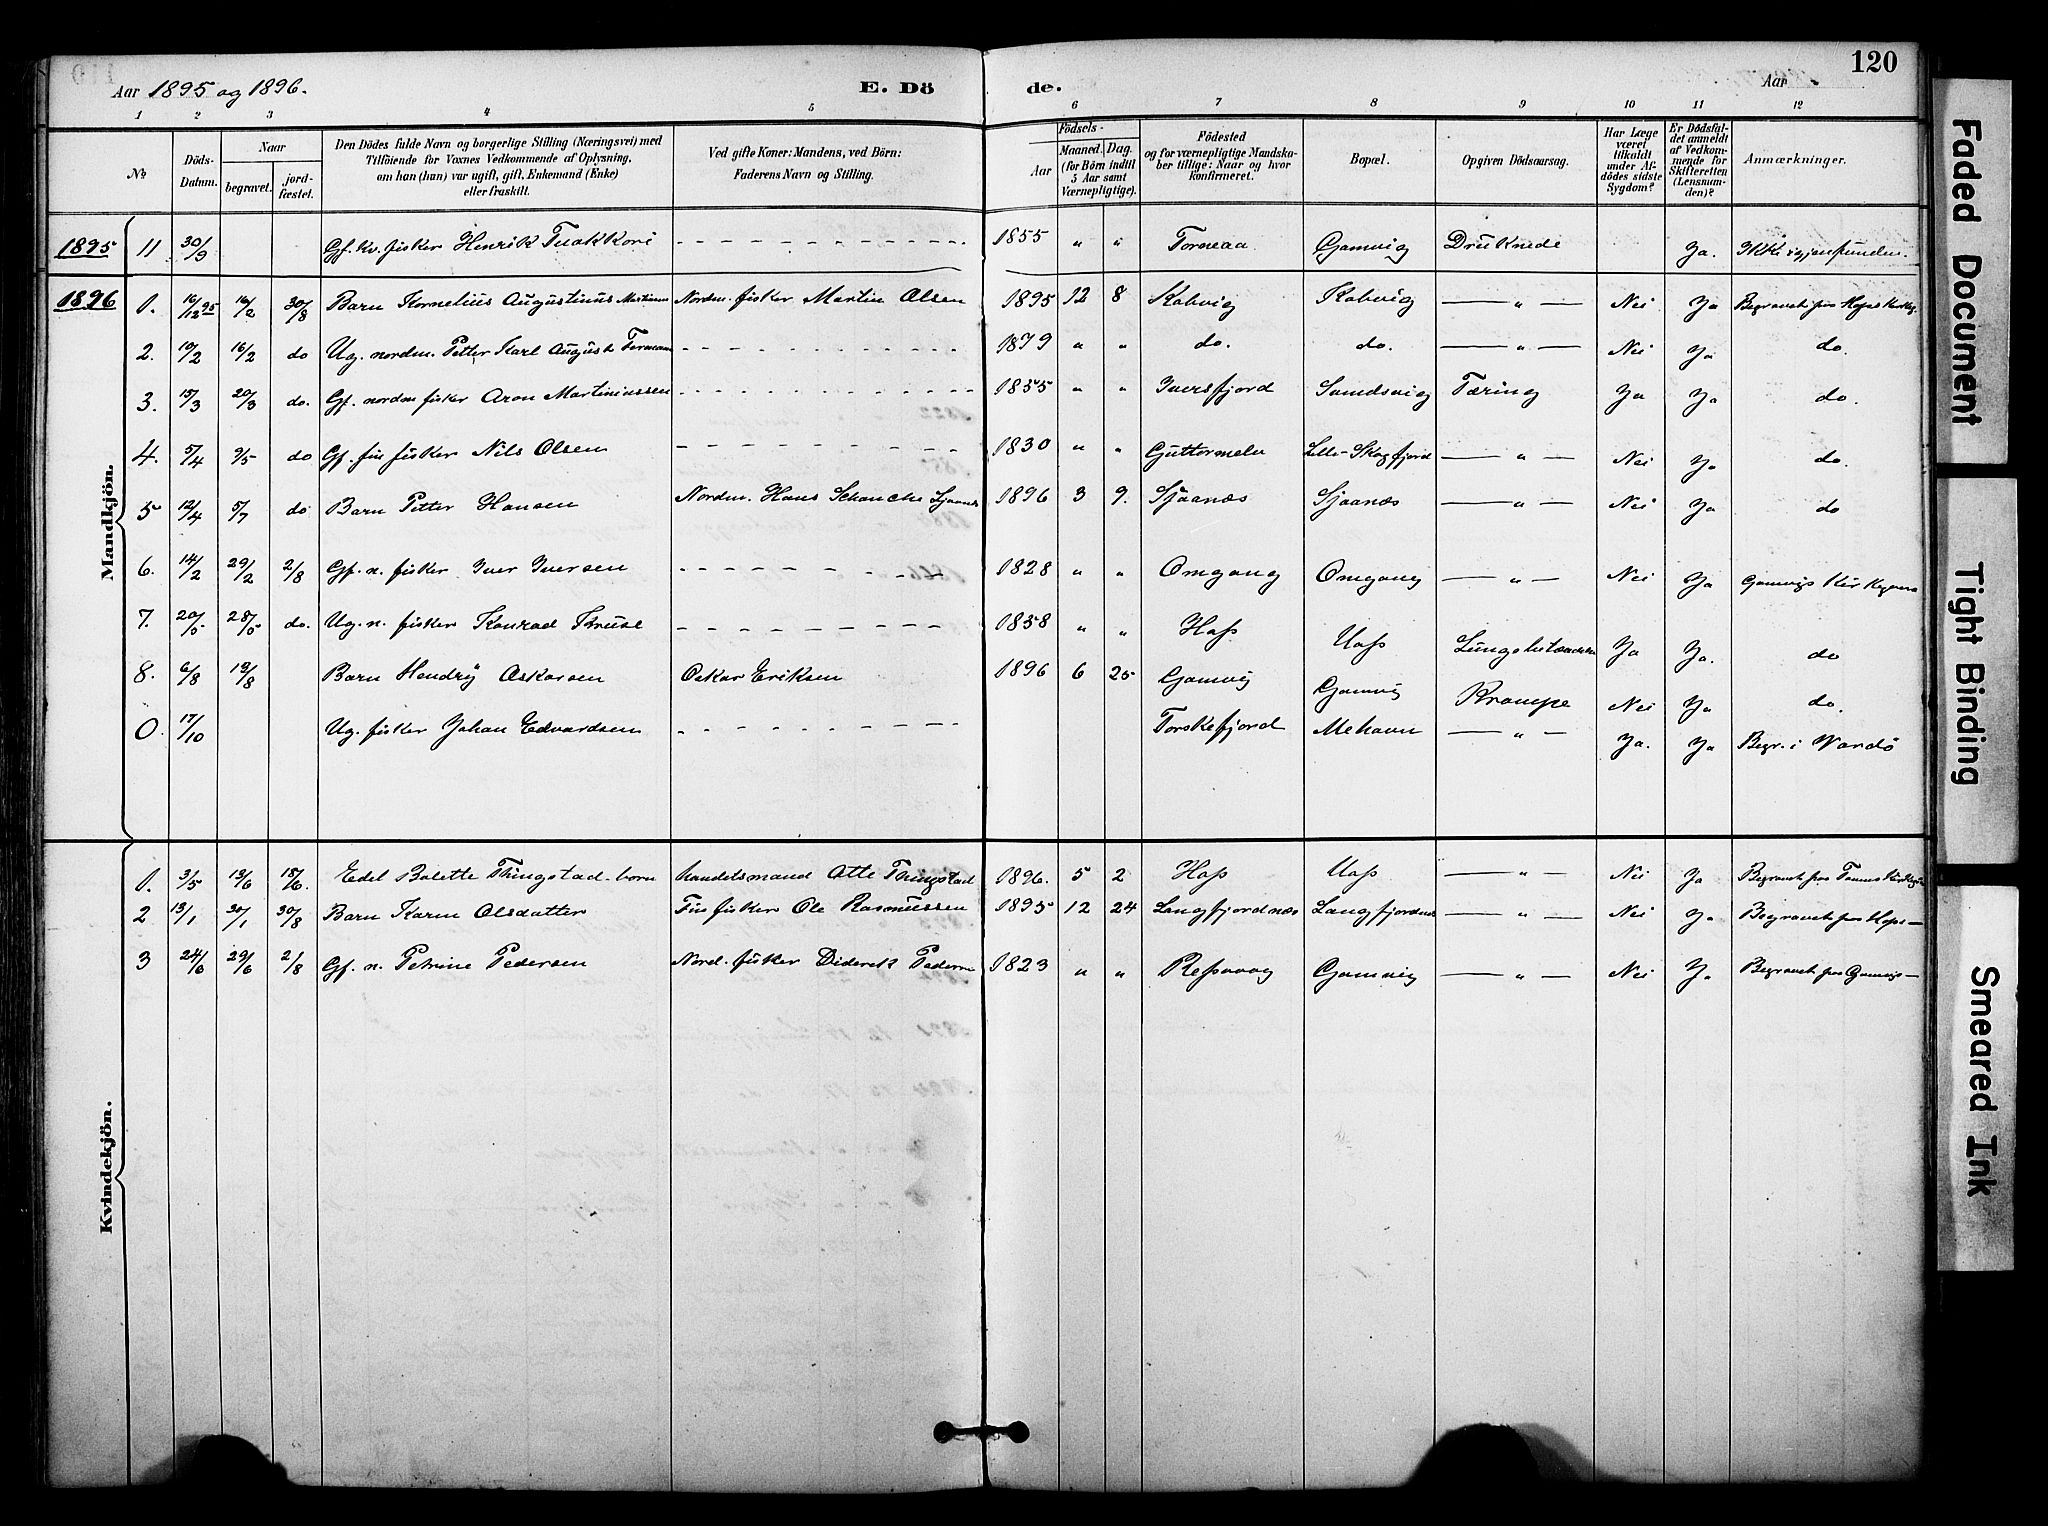 120
Aar 1895 og 1896.
E. Dö
de.
Aar
1 2 3 4 5 6 7 8 9 10 11 12
No
Döds-Datum.
Naar
begravet.
jord-fæstet.
Den Dödes fulde Navn og borgerlige Stilling (Næringsvei) med
Tilföiende for Voxnes Vedkommende af Oplysning,
om han (hun) var ugift, gift, Enkemand (Enke)
eller fraskilt.
Ved gifte Koner: Mandens, ved Börn:
Faderens Navn og Stilling.
Födsels-
Aar
Maaned. Dag.
(for Börn indtil
5 Aar samt
Værnepligtige).
Födested
og for værnepligtige Mandska-
ber tillige: Naar og hvor
konfirmeret.
Bopæl.
Opgiven Dödsaarsag.
Har Læge
været
tilkaldt
under Af-
dödes sidste
Sygdom?
Er Dödsfal-
det anmeldt
af Vedkom-
mende for
Skifteretten
(Lensman-
den)?
Anmærkninger.
1895 11 30/9 Gf. kv. fisker Henrik Tuokkori 1855 " " Torneaa Gamvig Druknede Ja. Ikke igjenfunden.
Mandkjön.
1896 1. 16/12 95 16/2 30/8 Barn Kornelius Augustinus Nordm. fisker Martin Olsen 1895 12 8 Kobvig Kobvig — " — Nei Ja Begravet paa Hops
2. 10/2 16/2 do Ug. nordm. Petter Karl August 1879 " " do. do. — " — Nei Ja do.
3. 15/3 20/3 do. Gf. nordm fisker Aron Martiniussen 1855 " " Iversfjord Sandsvig Tæring Ja Ja do.
4. 5/4 9/5 do Gf. fin fisker Nils Olsen 1830 " " Lille-Skogfjord — " — Nei Ja do.
5 12/4 5/7 do Barn Petter Hansen Nordm. Hans Schanche 1896 3 9. Sjaanæs Sjaanæs — " — Nei Ja do
6. 14/2 29/2 2/8 Gf. n. fisker Iver Iversen 1828 " " Omgang Omgang — " — Nei Ja Gamvigs
7. 20/5 28/5 do. Ug. n. fisker Konrad Kruse 1858 " " Hop Hop Ja Ja. do
8. 6/8 19/8 Barn Hendry Oskarsen Oskar Eriksen 1896 6 25 Gamvig Gamvig Krampe Nei Ja do.
0. 17/10 Ug. fisker Johan Edvardsen Torskefjord Mehavn — " — Ja. Ja Begr. i Vardö
Kvindekjön.
1. 3/5 13/6 15/6. Edel Bolette Thingstad. barn Handelsmand Otto Thingstad 1896. 5 2 Hop Hop — " — Nei Ja Begravet paa
2 13/1 30/1 30/8 Barn Karen Olsdatter Fin fisker Ole Rasmussen 1895 12 24 Langfjordnæs Langfjordnæs — " — Nei Ja Begravet paa Hops —
3 24/6 29/6 2/8 Gf. n. Petrine Pedersen Nord. fisker Diderik 1823 " " Gamvig — " — Nei Ja Begravet paa Gamvigs —
Faded Document
Tight Binding
Smeared Ink